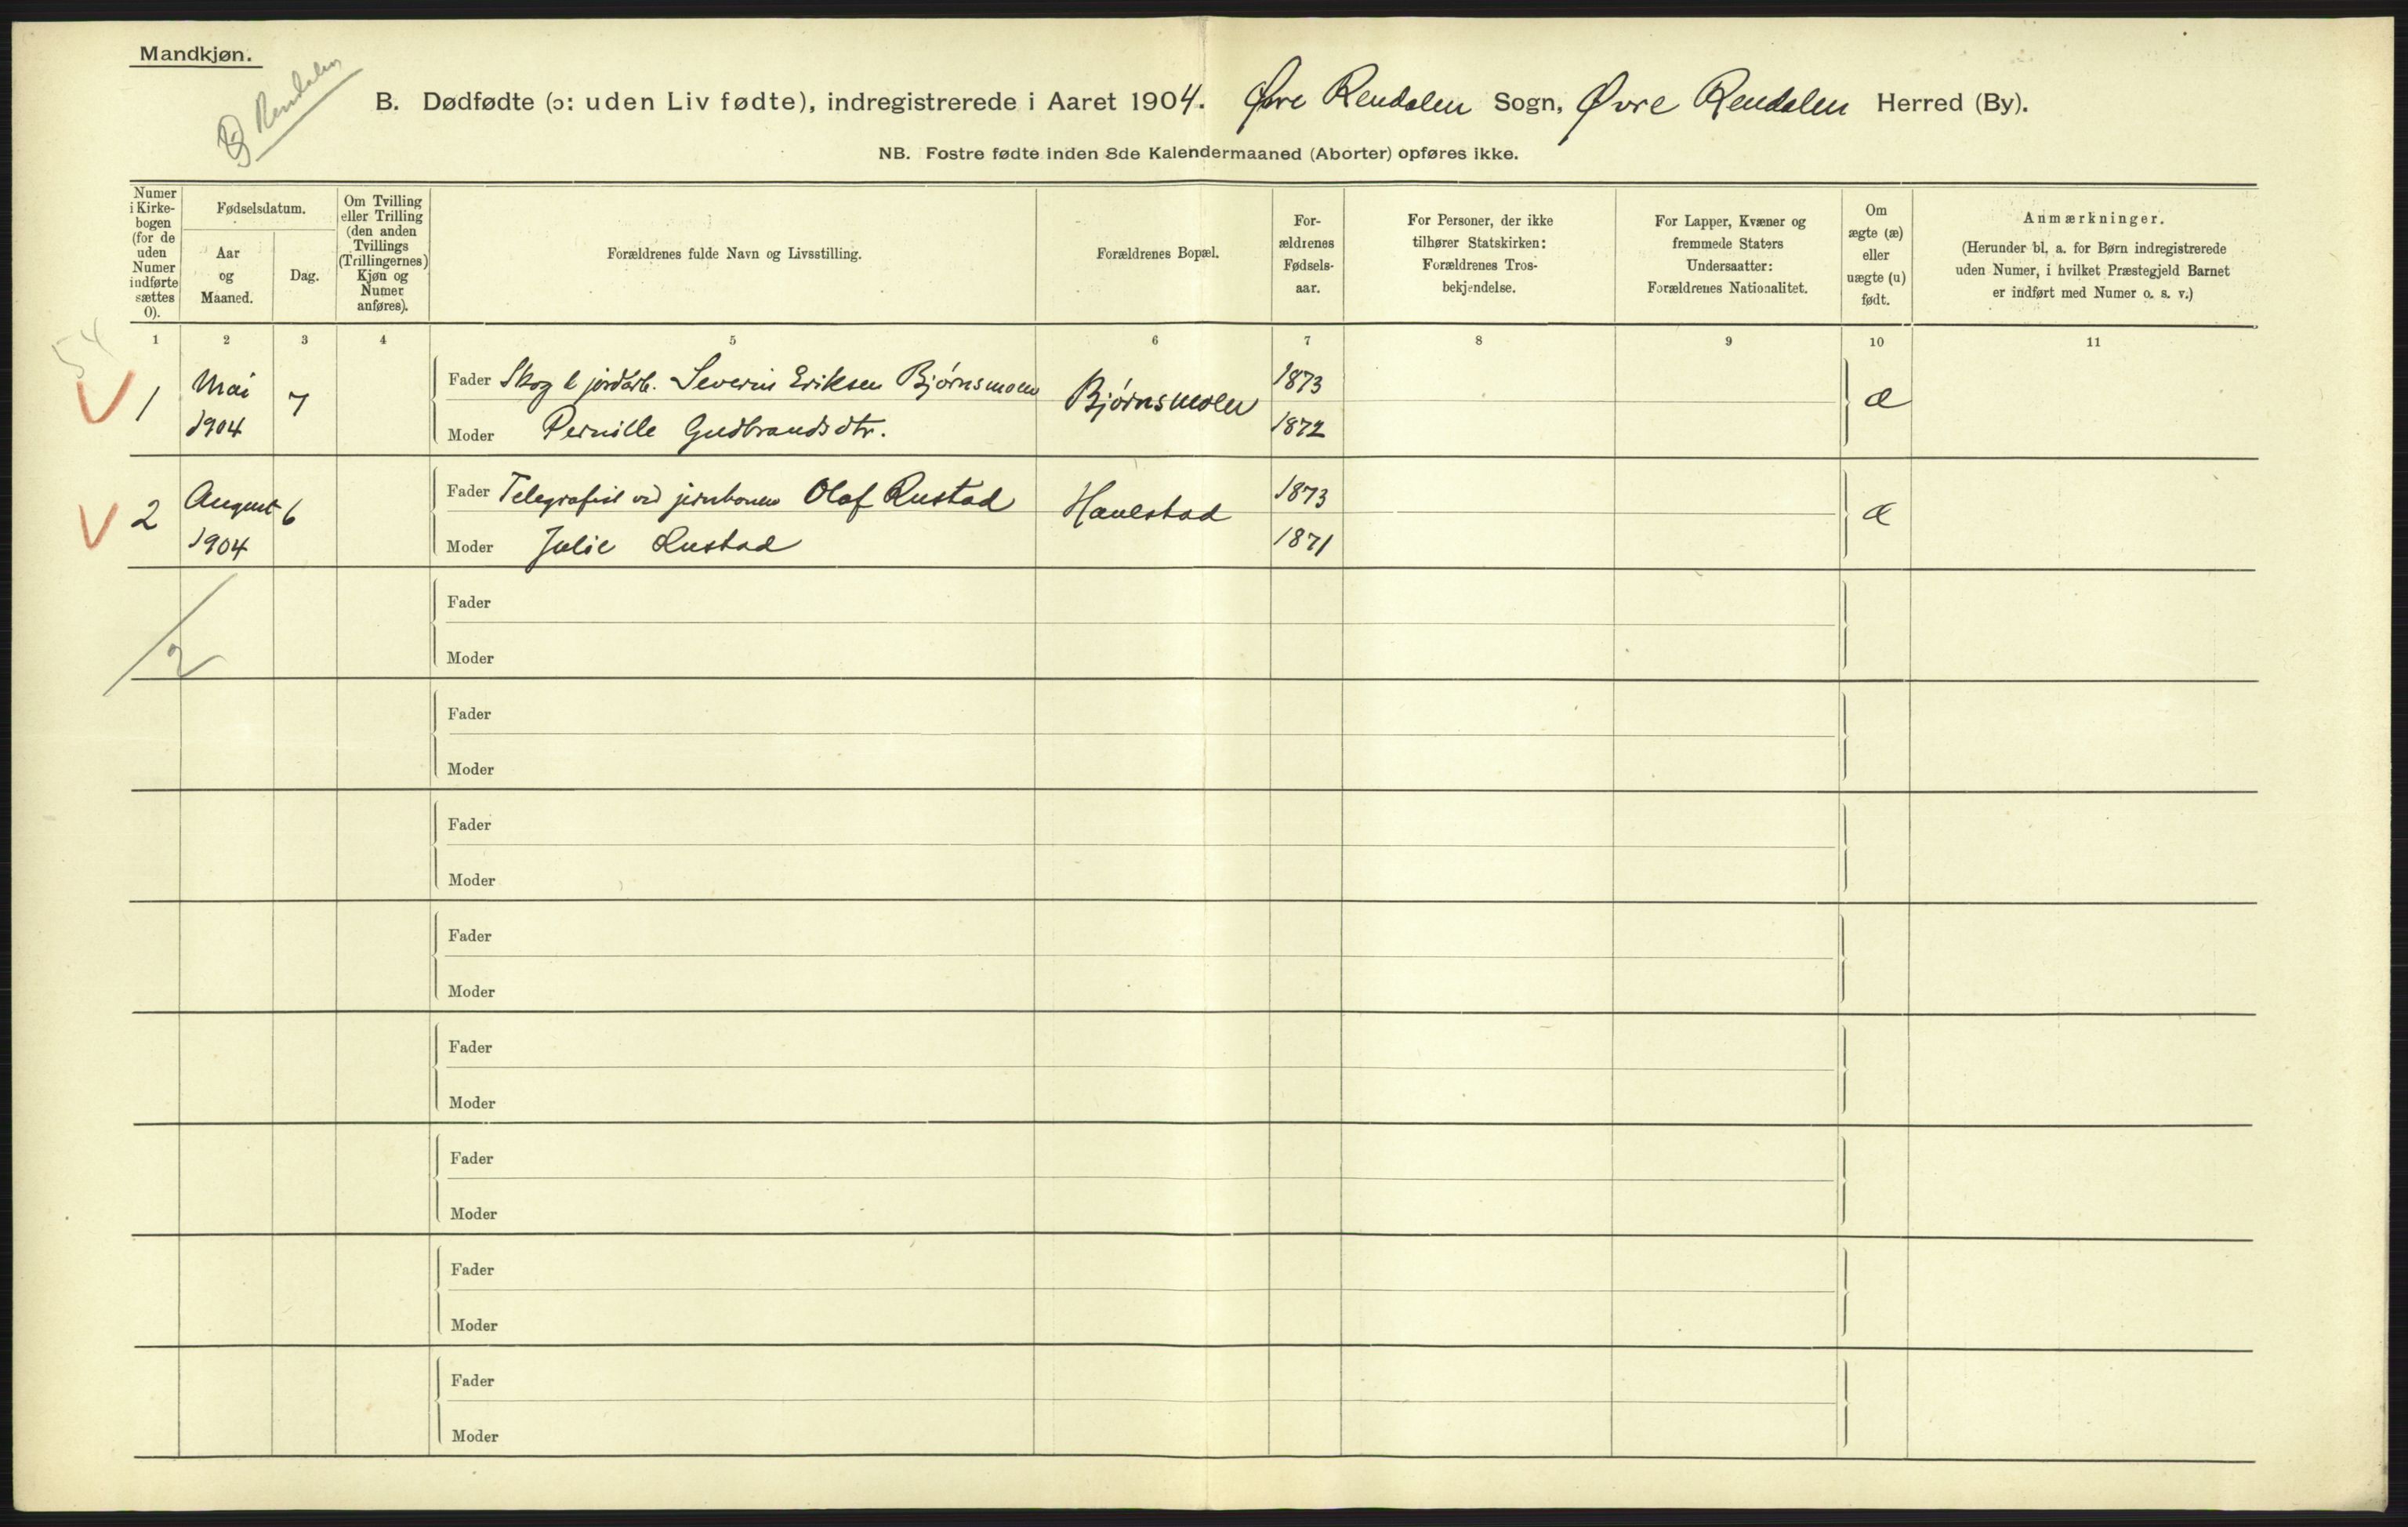 Mandkjøn.
Rendalen
B. Dødfødte (ɔ: uden Liv fødte), indregistrerede i Aaret 1904. Øvre Rendalen Sogn, Øvre Rendalen Herred (By).
NB. Fostre fødte inden 8de Kalendermaaned (Aborter) opføres ikke.
Numer
i Kirke-
bogen
(for de
uden
Numer
indførte
sættes
0).
Fødselsdatum.
Aar
og
Maaned.
Dag.
Om Tvilling
eller Trilling
(den anden
Tvillings
(Trillingernes)
Kjøn og
Numer
anføres).
Forældrenes fulde Navn og Livsstilling.
Forældrenes Bopæl.
For-
ældrenes
Fødsels-
aar.
For Personer, der ikke
tilhører Statskirken:
Forældrenes Tros-
bekjendelse.
For Lapper, Kvæner og
fremmede Staters
Undersaatter:
Forældrenes Nationalitet.
Om
ægte (æ)
eller
uægte (u)
født.
Anmærkninger.
(Herunder bl. a. for Børn indregistrerede
uden Numer, i hvilket Præstegjeld Barnet
er indført med Numer o. s. v.)
1 2 3 4 5 6 7 8 9 10 11
54
1 Mai 1904 7
Fader Skog & jordarb. Severin Eriksen Bjørnsmoen Bjørnsmoen 1873 æ
Moder Pernille Gudbrandsdtr. 1872
2 August 1904 6
Fader Telegrafist ved jernbanen Olaf Rustad Hanestad 1873 æ
Moder Julie Rustad 1871
Fader
2
Moder
Fader
Moder
Fader
Moder
Fader
Moder
Fader
Moder
Fader
Moder
Fader
Moder
Fader
Moder